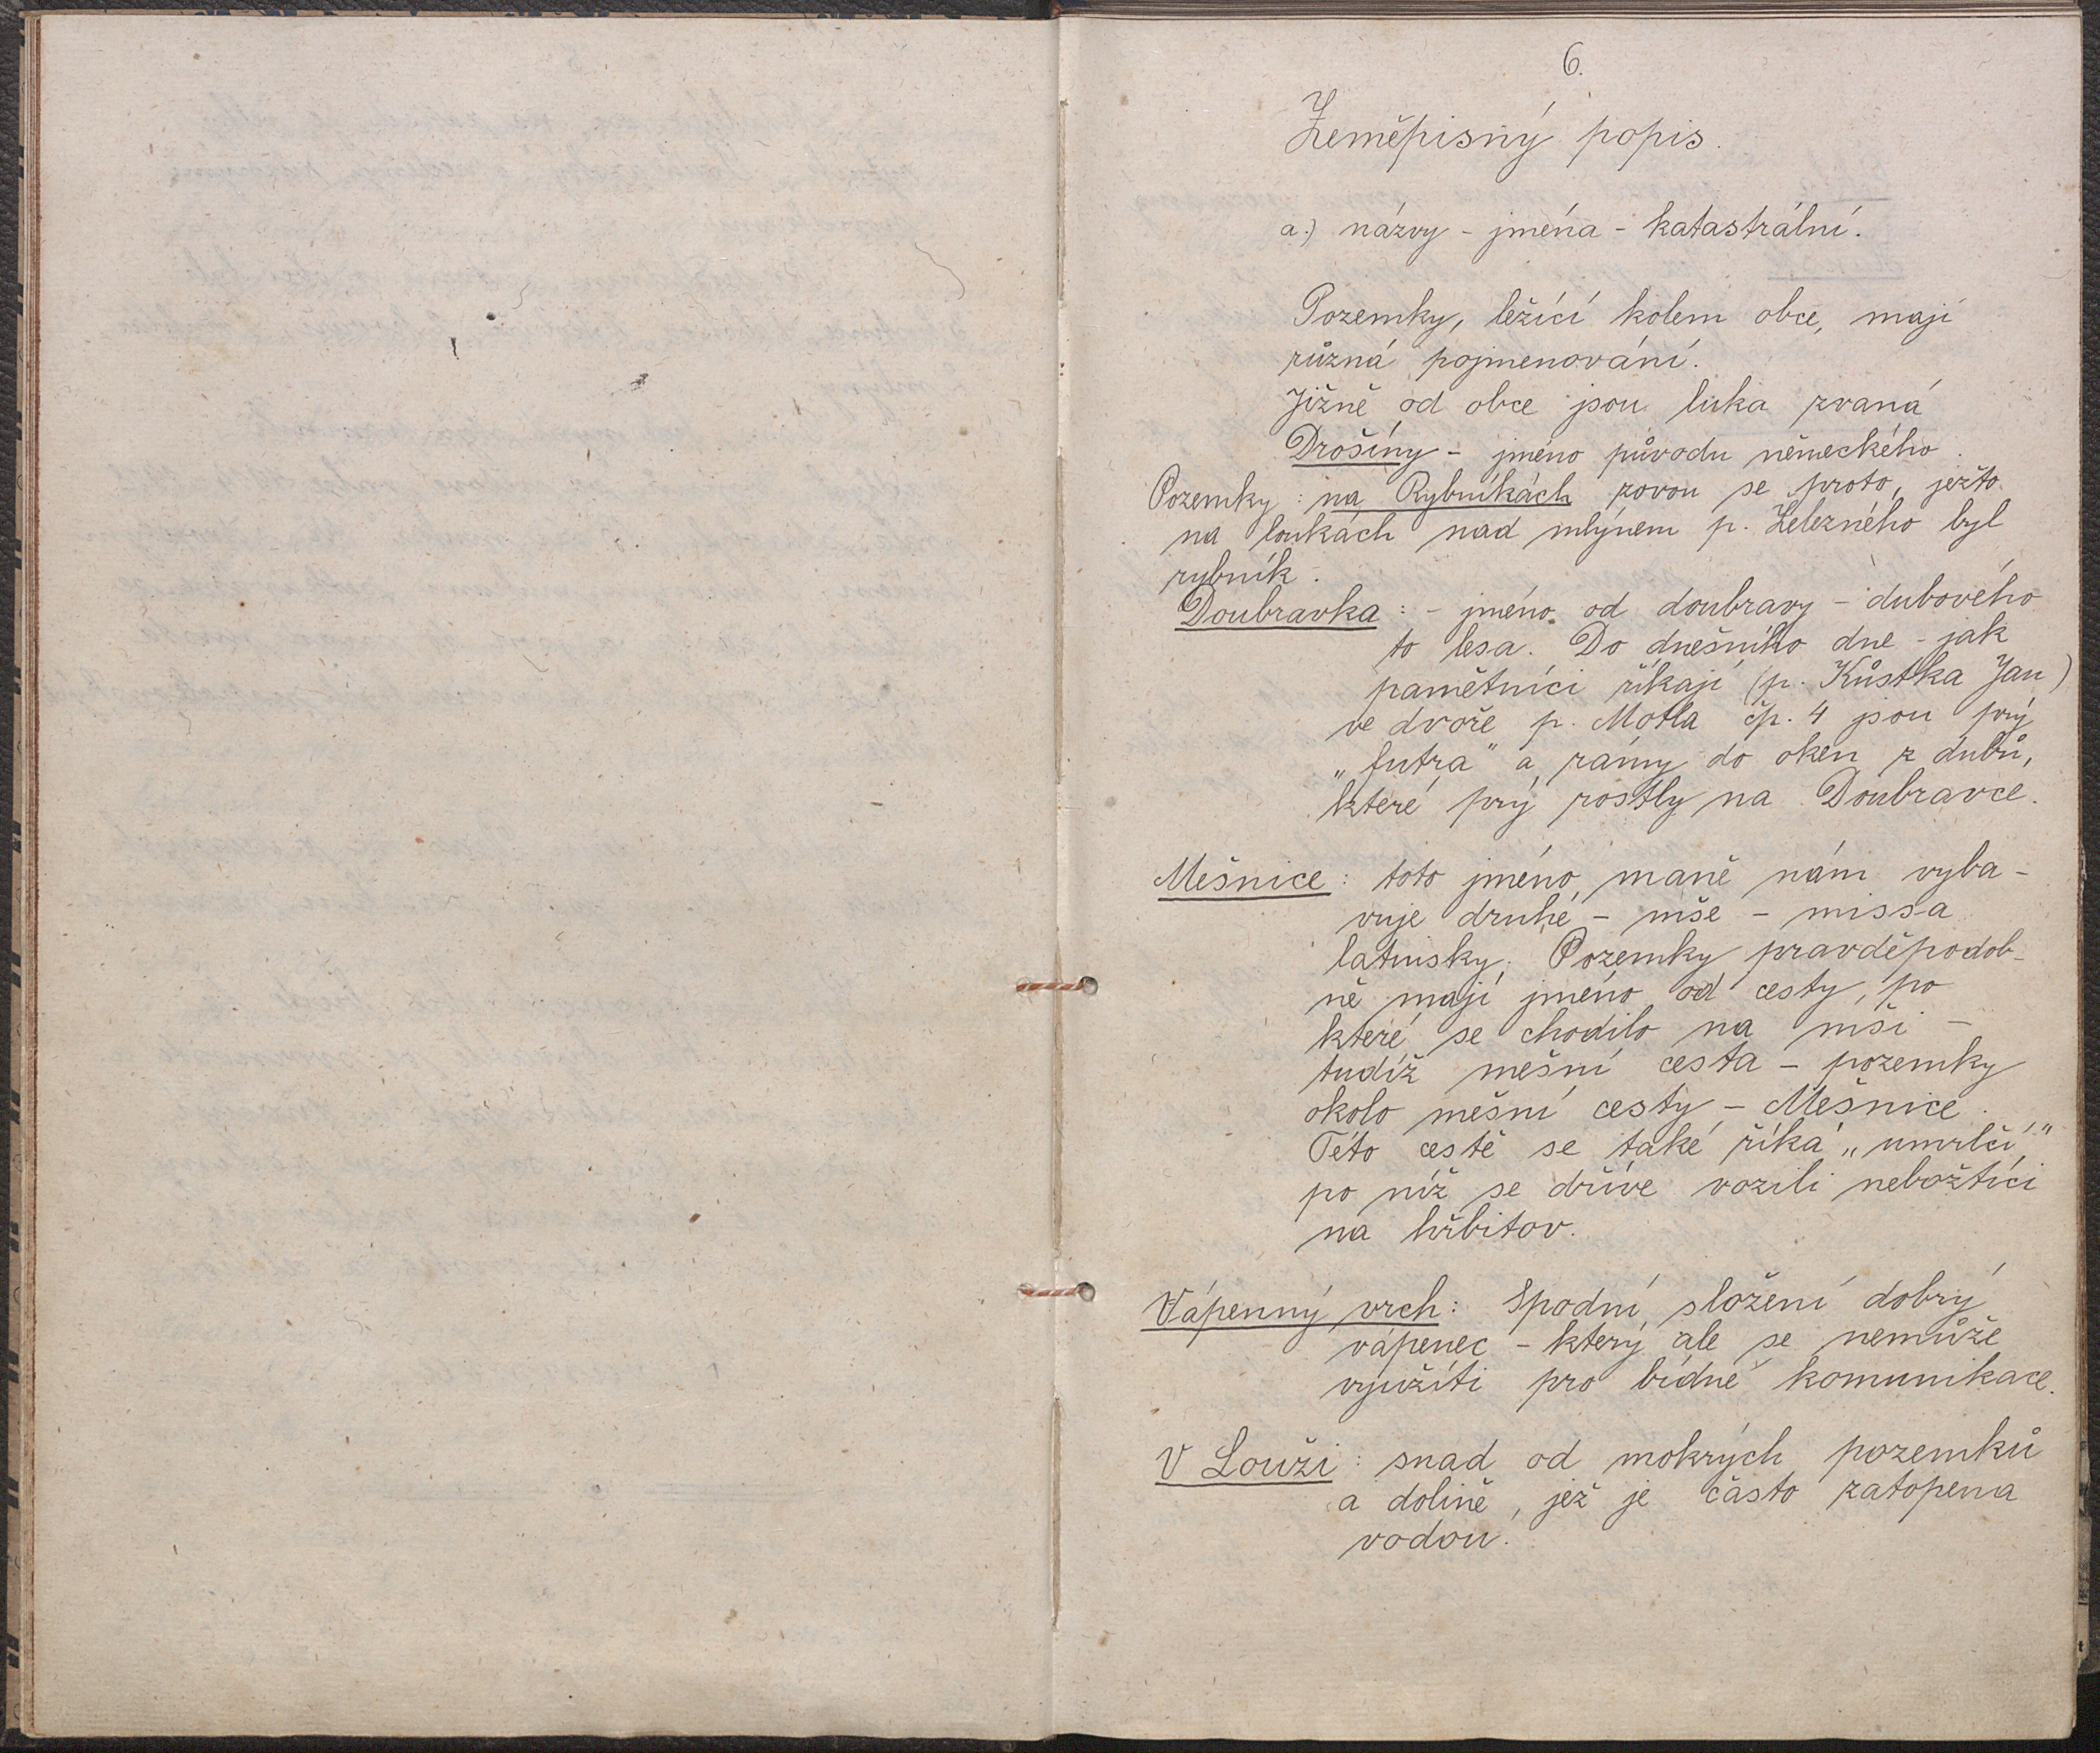 6.
Zeměpisný popis.
a.) názvy - jména - katastrální.
Pozemky, ležící kolem obce, mají
různá pojmenování.
Jižně od obce jsou luka zvaná
Drošíny - jméno původu německého.
Pozemky: na Rybníkách zovou se proto, ježto
na loukách nad mlýnem p. Železného byl
rybník.
Doubravka: - jméno od doubravy - dubového
to lesa. Do dnešního dne - jak
pamětníci říkají (p. Kůstka Jan)
ve dvoře p. Motla čp. 4 jsou prý
„futra" a rámy do oken z dubů,
které prý rostly na Doubravce.
Mešnice: toto jméno maně nám vyba-
vuje druhé - mše - missa
latinsky. Pozemky pravděpodob-
ně mají jméno od cesty, po
které se chodilo na mši -
tudíž mešní cesta - pozemky
okolo mešní cesty - Mešnice.
Této cestě se také říká „umrlčí",
po níž se dříve vozili nebožtíci
na hřbitov.
Vápenný vrch: Spodní složení dobrý
vápenec - který ale se nemůže
využíti pro bídné komunikace.
V Louži: snad od mokrých pozemků
a dolině, jež je často zatopena
vodou.